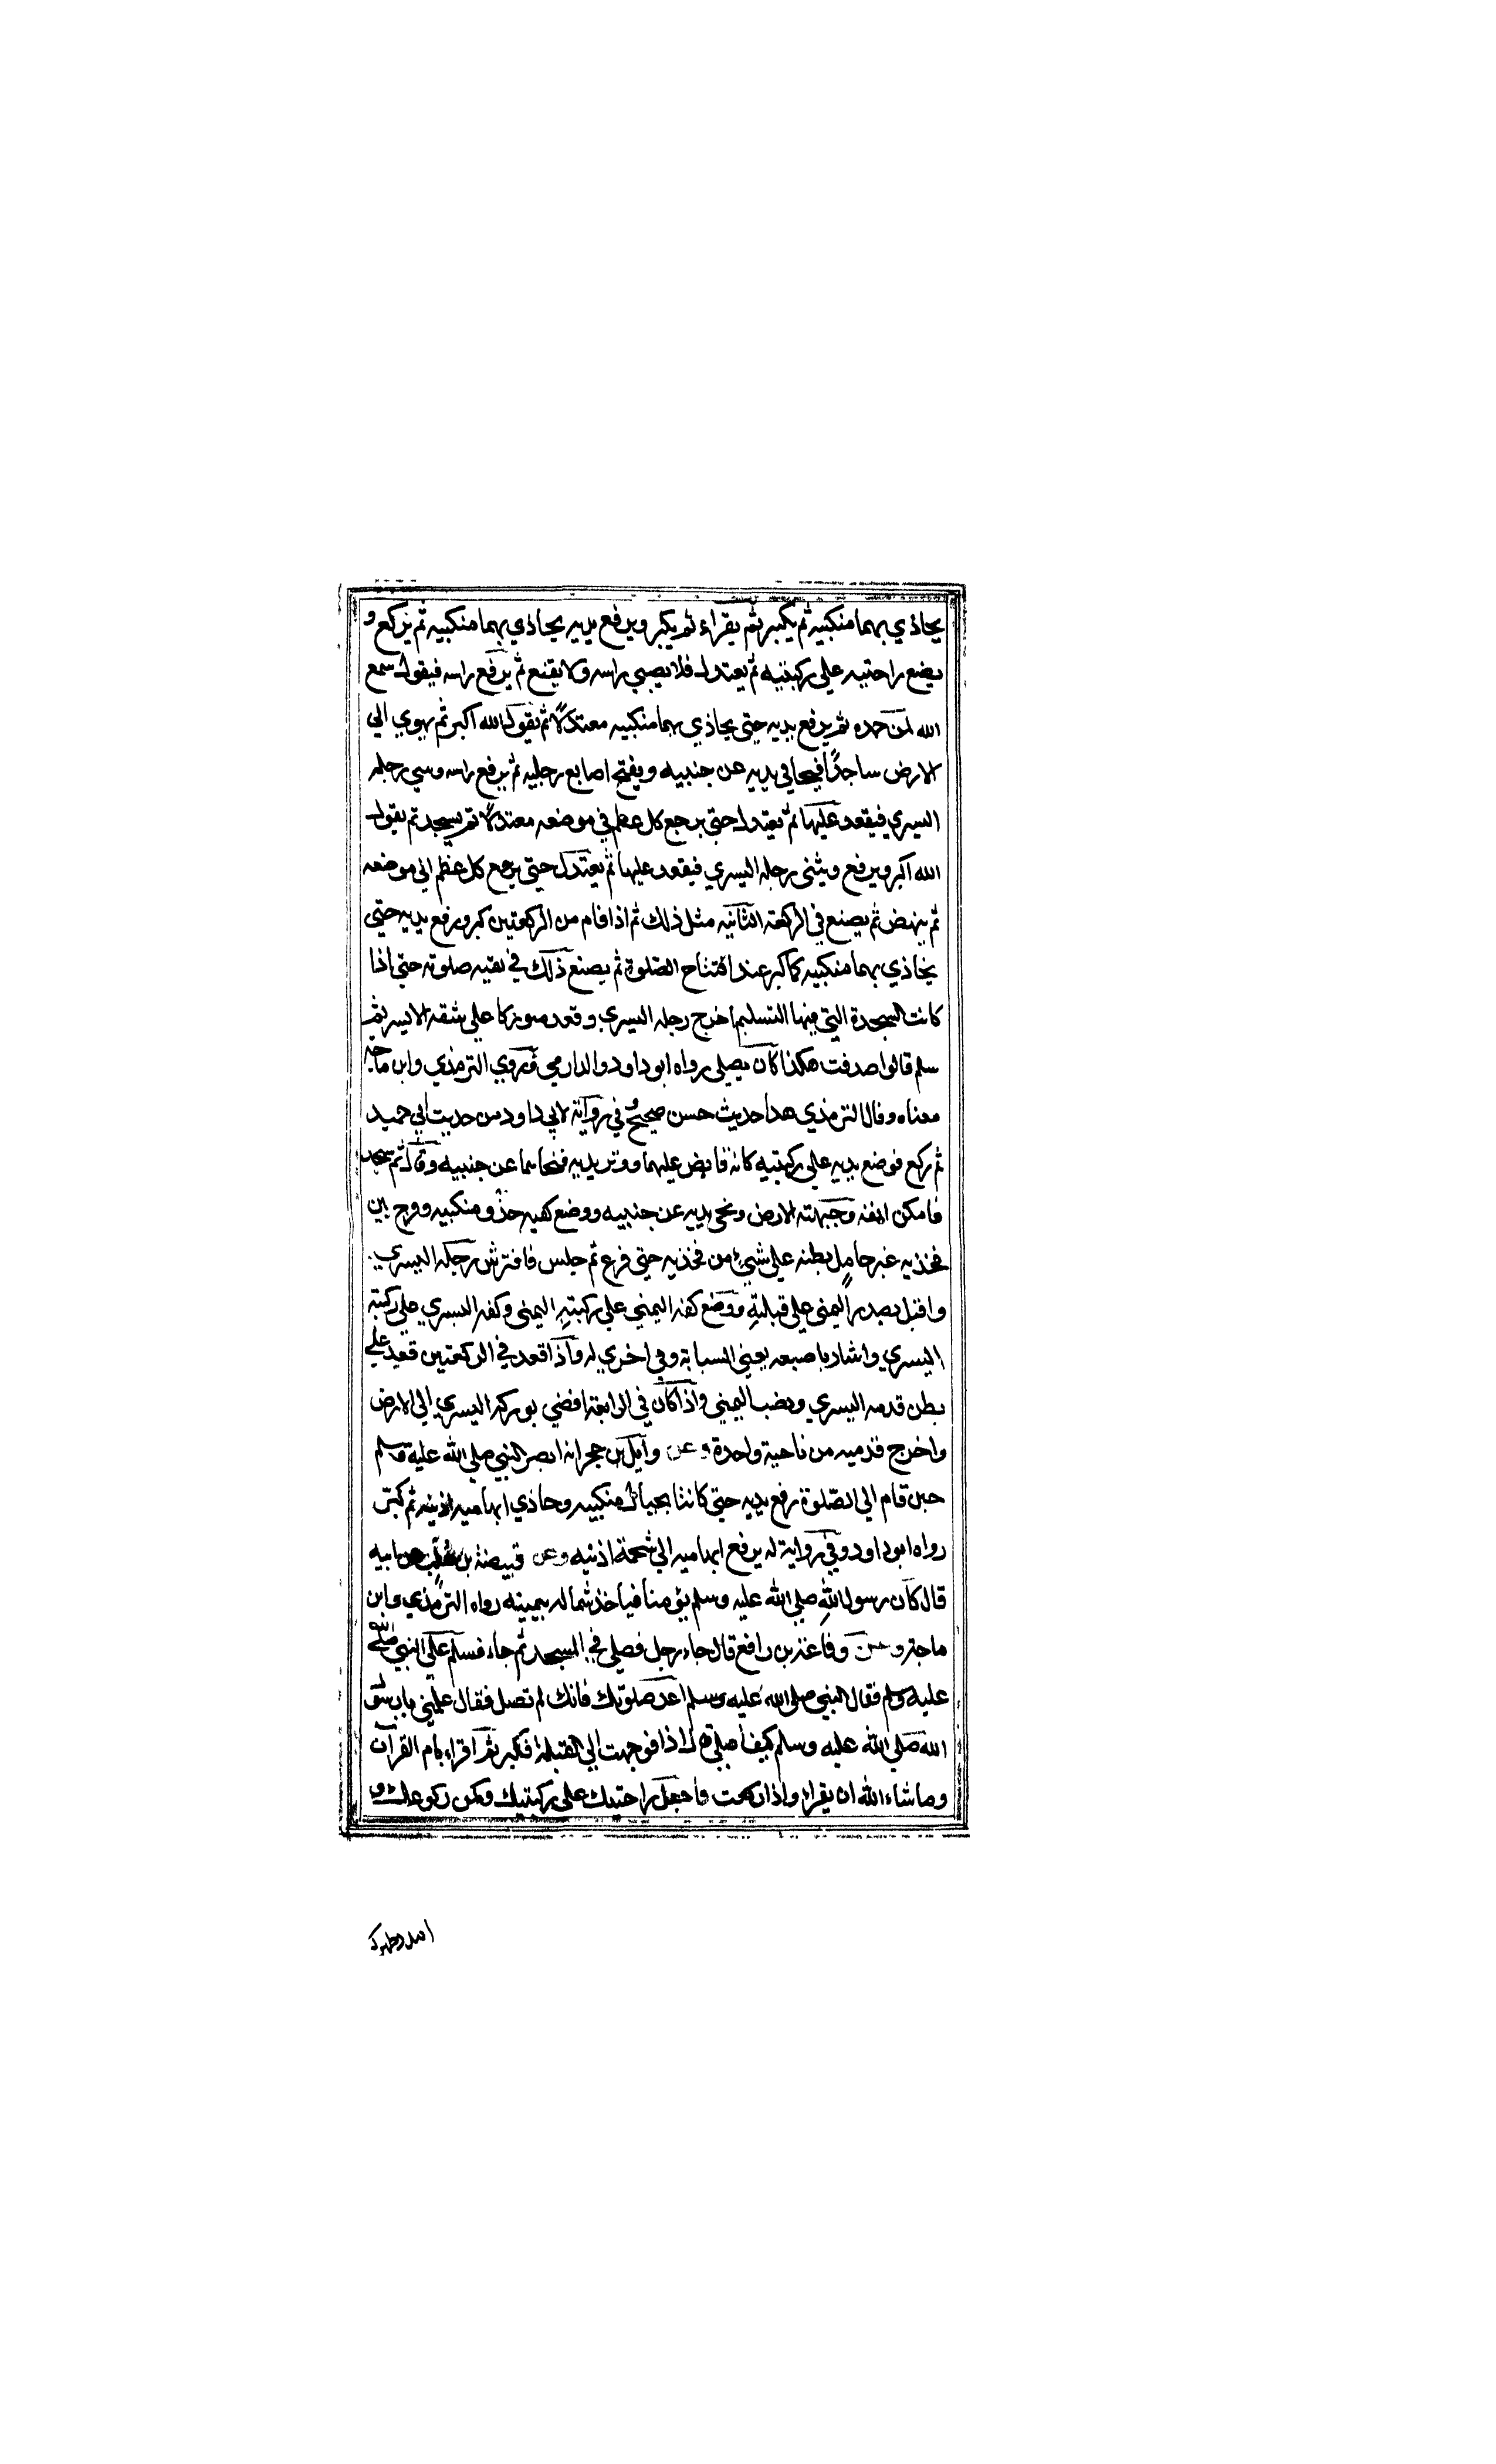 يحاذي بهما منكبيه ثم يكبر ثم يقراء ثم يكبر ويرفع يديه يحاذي بهما منكبيه ثم يركع و
يضع راحتيه علي ركبتيه ثم يعتدل فلا يصبي راسه ولا يقنع ثم يرفع راسه فيقول سمع
الله لمن حمده ثم يرفع يديه حتي يحاذي بهما منكبيه معتدلاً ثم يقول الله اكبر ثم يهوي الي
الارض ساجدًا فيجافي يديه عن جنبيه ويفتح اصابع رجليه ثم يرفع راسه ويثني رجله
اليسري فيقعد عليها ثم يعتدل حتي يرجع كل عظم في موضعه معتدلاً ثم يسجد ثم يقول
الله اكبر ويرفع ويثني رجله اليسري فيقعد عليها ثم يعتدل حتي يرجع كل عظم الي موضعه
ثم ينهض ثم يصنع في الركعة الثانيه مثل ذلك ثم اذا قام من الركعتين كبر ورفع يديه حتي
يحاذي بهما منكبيه كما كبر عند افتتاح الصلوة ثم يصنع ذلك في بقيه صلوته حتي اذا
كانت السجدة التي فيها التسليم اخرج رجله اليسري وقعد متوركا علي شقه الايسر ثم
سلم قالوا صدقت هكذا كان يصلي رواه ابو داود والدارمي وروي الترمذي وابن ماجه
معناه وقال الترمذي هذا حديث حسن صحيح وفي رواية لابي داود من حديث ابي حميد
ثم ركع فوضع يديه علي ركبتيه كانه قابض عليهما ووتر يديه فنحاهما عن جنبيه وقال ثم سجد
فامكن انفه وجبهته الارض ونحي يديه عن جنبيه ووضع كفيه حذو منكبيه وفرج بين
فخذيه غير حامل بطنه علي شيء من فخذيه حتي فرغ ثم جلس فافترش رجله اليسري
واقبل بصدر اليمني علي قبلته ووضع كفه اليمني علي ركبته اليمني وكفه اليسري علي ركبته
اليسري واشار باصبعه يعني السبابة وفي اخري له واذا قعد في الركعتين قعد علي
بطن قدمه اليسري ونصب اليمني واذا كان في الرابعة افضي بوركه اليسري الي الارض
واخرج قدميه من ناحية واحدة وعن وايل بن حجر انه ابصر النبي صلي الله عليه وسلم
حين قام الي الصلوة رفع يديه حتي كانتا بحيال منكبيه وحاذي ابهاميه اذنيه ثم كبر
رواه ابو داود وفي رواية له يرفع ابهاميه الي شحمة اذنيه وعن قبيصة بن هلب عن ابيه
قال كان رسول الله صلي الله عليه وسلم يؤمنا فياخذ شماله بيمينه رواه الترمذي وابن
ماجة وعن رفاعة بن رافع قال جاء رجل فصلي في المسجد ثم جاء فسلم علي النبي صلي الله
عليه وسلم فقال النبي صلي الله عليه وسلم اعد صلوتك فانك لم تصل فقال علمني يا رسول
الله صلي الله عليه وسلم كيف اصلي قال اذا توجهت الي القبلة فكبر ثم اقراء بام القرآن
وما شاء الله ان يقراء واذا ركعت فاجعل راحتيك علي ركبتيك ومكن ركوعك و
امدد ظهرك